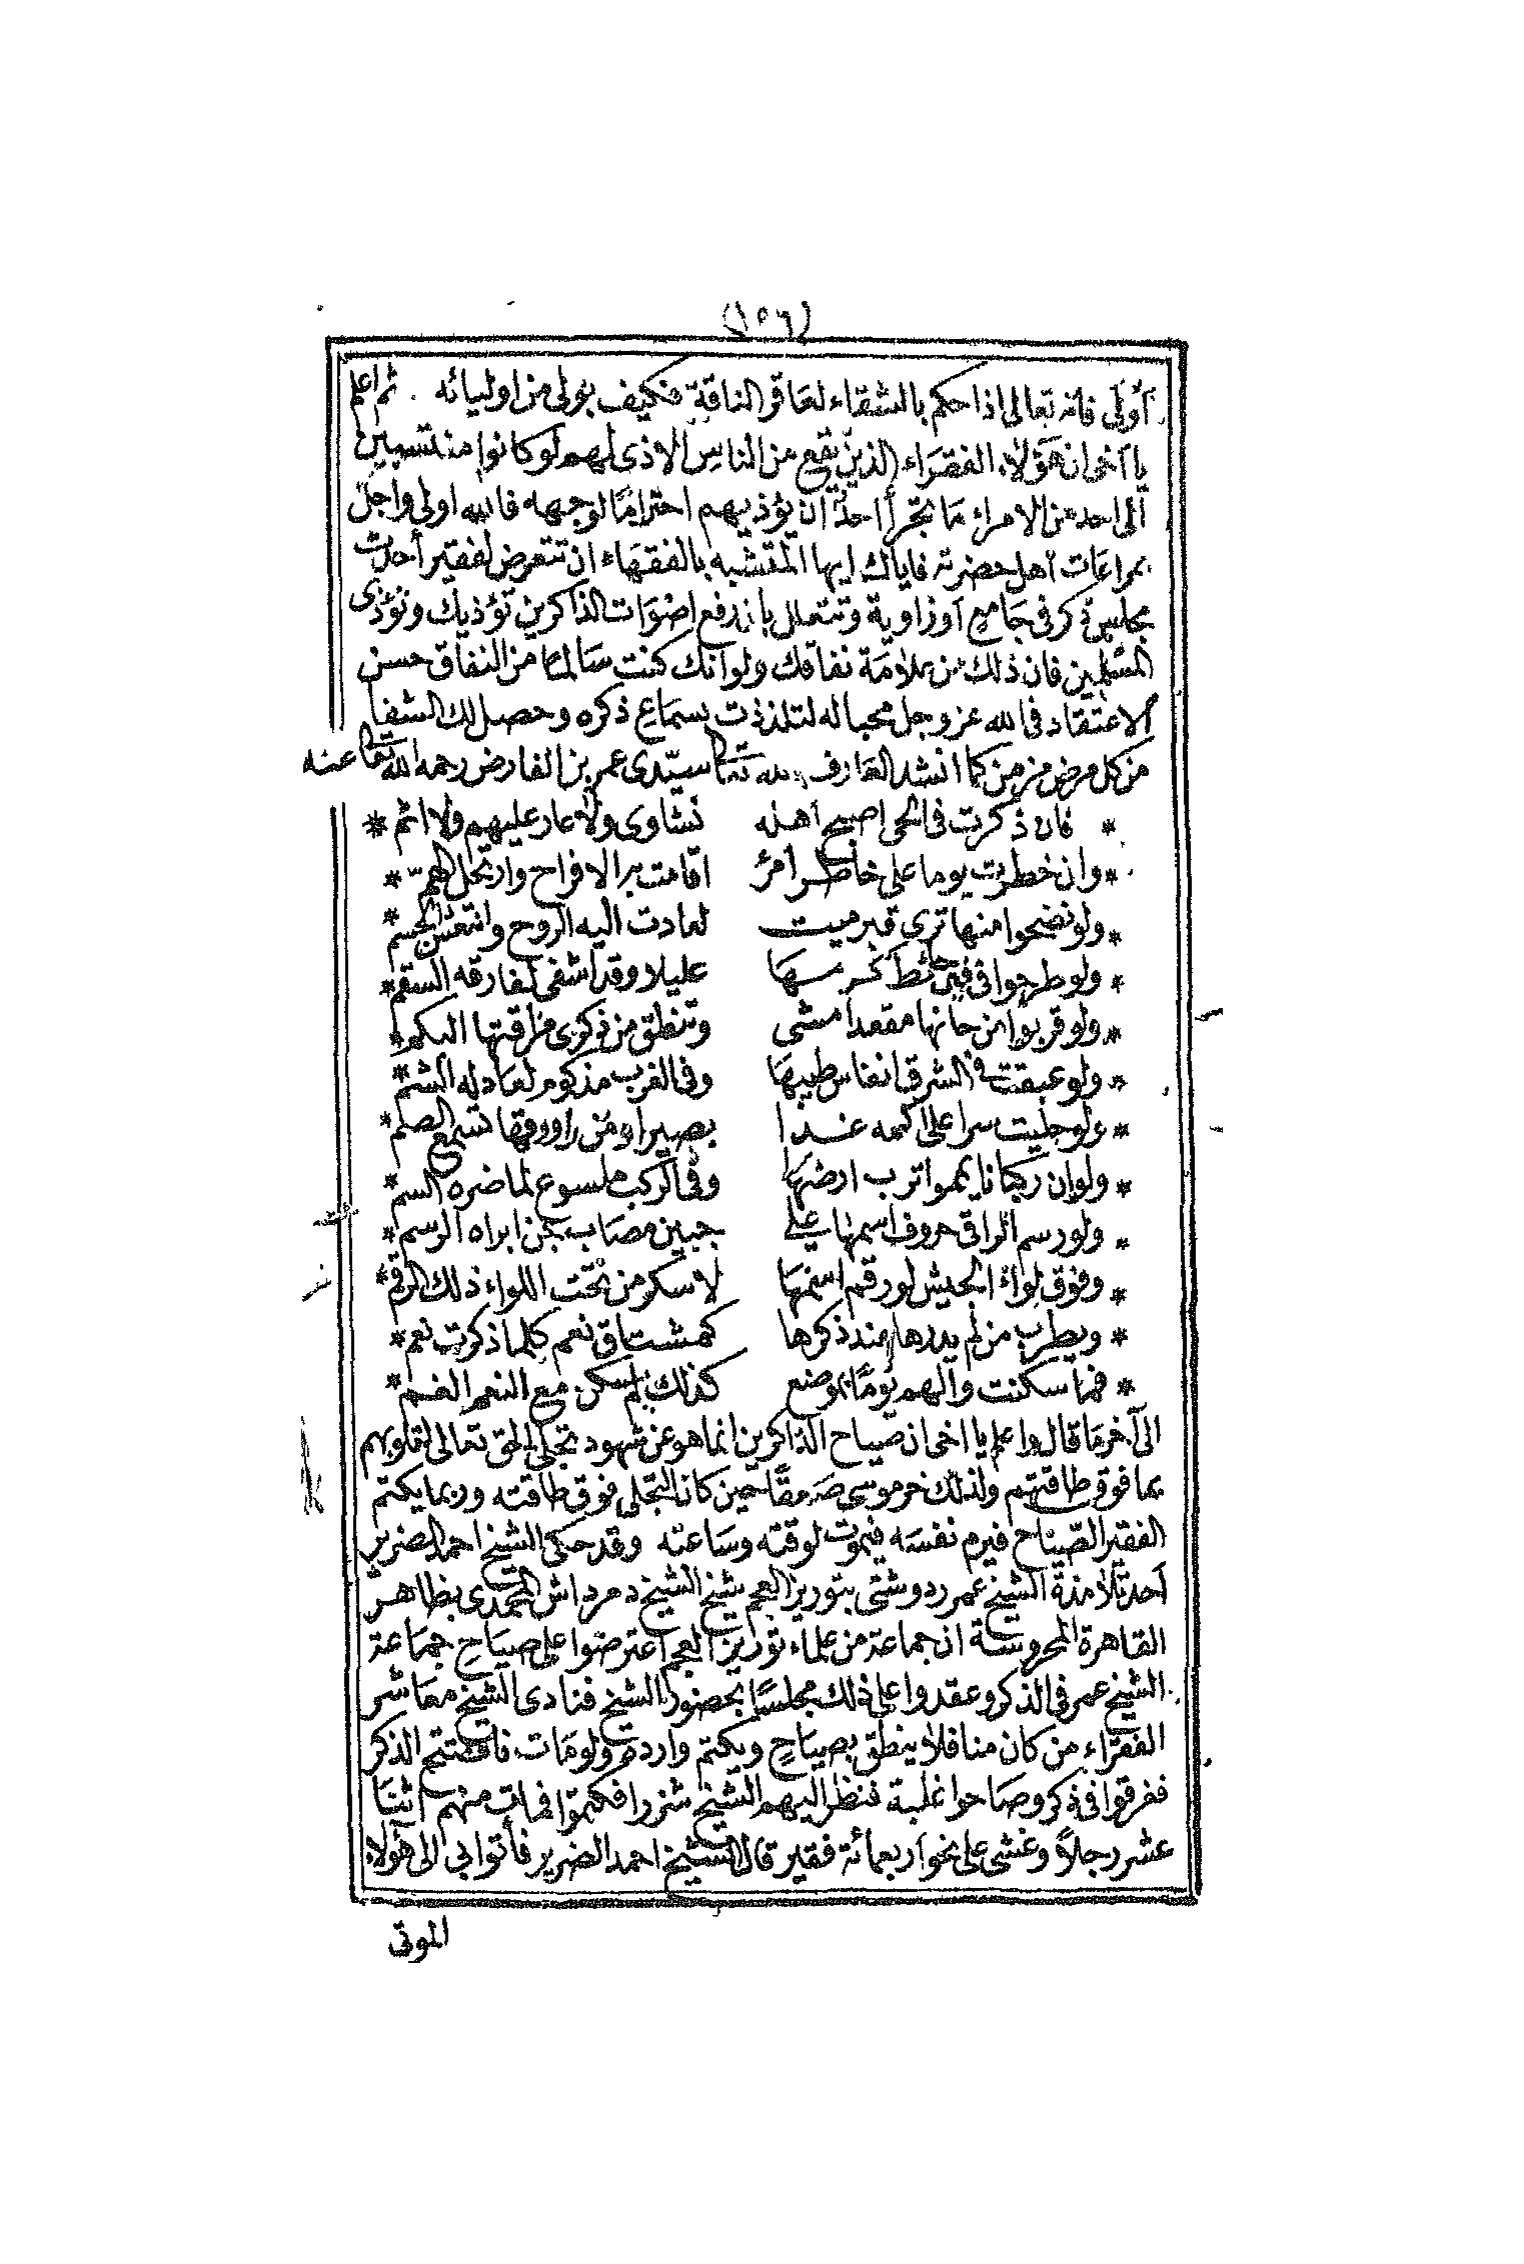 (١٥٦)
أولى فانه تعالى اذا حكم بالشقاء لعاقر الناقة فكيف بولى من اوليائه . ثم اعلم
يا آخى ان هؤلاء الفقراء الذين يقع من الناس الاذى لهم لو كانوا منتسبين
الى احد من الامراء ما تجرأ احد ان يؤذيهم احتراما لوجهه فالله اولى واجل
بمراعات اهل حضرته فاياك ايها المتشبه بالفقهاء ان تتعرض لفقير أحدث
مجلس ذكر فى جامع أو زاوية وتتعلل بان رفع اصوات الذاكرين تؤذيك وتؤذى
المسلمين فان ذلك من علامة نفاقك ولو انك كنت سالما من النفاق حسن
الاعتقاد فى الله عز وجل محبا له لتلذذت بسماع ذكره وحصل لك الشفا
من كل مرض مزمن كما انشد العارف بالله تعالى سيدى عمر بن الفارض رحمه الله تعالى عنه
* فان ذكرت فى الحى اصبح اهله نشاوى ولا عار عليهم ولا اثم *
* وان خطرت يوما على خاطر امرئ اقامت به الافراح وارتحل الهم *
* ولو نضحوا منها ثرى قبر ميت لعادت اليه الروح وانتعش الجسم *
* ولو طرحوا فى فئ حائط كرمها عليلا وقد اشفى لفارقه السقم *
* ولو قربوا من حانها مقعدا مشى وتنطق من ذكرى مذاقتها البكم *
* ولو عبقت فى الشرق انفاس طيبها وفى الغرب مزكوم لعاد له الشم *
* ولو جليت سرا على اكمه غدا بصيرا ومن راووقها تسمع الصم *
* ولو ان ركبانا يمموا ترب ارضها وفى الركب ملسوع لما ضره السم *
* ولو رسم الراقى حروف اسمها على جبين مصاب جن ابراه الرسم *
* وفوق لواء الجيش لو رقم اسمها لاسكر من تحت اللواء ذلك الرقم *
* ويطرب من لم يدرها عند ذكرها كمشتاق نعم كلما ذكرت نعم *
* فما سكنت والهم يوما بموضع كذلك لم يسكن مع النعم الغم *
الى آخر ما قال واعلم يا اخى ان صياح الذاكرين انما هو عن شهود تجلى الحق تعالى لقلوبهم
بما فوق طاقتهم ولذلك خر موسى صعقا حين كان التجلى فوق طاقته وربما يكتم
الفقير الصياح فيرم نفسه فيموت لوقته وساعته وقد حكى الشيخ احمد الضرير
أحد تلامذة الشيخ عمر ردوشنى بتوريز العجم شيخ الشيخ دمرداش المحمدى بظاهر
القاهرة المحروسة ان جماعة من علماء توريز العجم اعترضوا على صياح جماعة
الشيخ عمر فى الذكر وعقدوا على ذلك مجلسا بحضور الشيخ فنادى الشيخ معاشر
الفقراء من كان منا فلا ينطق بصياح ويكتم وارده ولو مات فافتتح الذكر
ففرقوا فى ذكر وصاحوا غلبة فنظر اليهم الشيخ شزرا فكتموا فمات منهم اثنا
عشر رجلا وغشى على نحو اربعمائة فقير قال الشيخ احمد الضرير فأتوا بى الى هؤلاء
الموتى